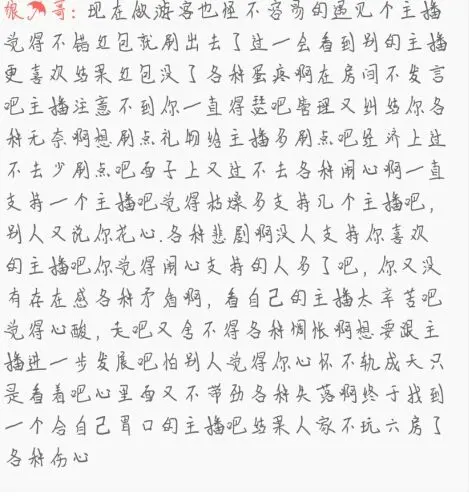 狼🔥哥：现在做游客也怪不容易的遇见个主播
觉得不错红包就刷出去了过一会看到别的主播
更喜欢结果红包没了各种蛋疼啊在房间不发言
吧主播注意不到你一直得瑟吧管理又纠结你各
种无奈啊想刷点礼物给主播多刷点吧经济上过
不去少刷点吧面子上又过不去各种闹心啊一直
支持一个主播吧觉得枯燥多支持几个主播吧，
别人又说你花心.各种悲剧啊没人支持你喜欢
的主播吧你觉得闹心支持的人多了吧，你又没
有存在感各种矛盾啊，看自己的主播太辛苦吧
觉得心酸，走吧又舍不得各种惆怅啊想要跟主
播进一步发展吧怕别人觉得你心怀不轨成天只
是看着吧心里面又不带劲各种失落啊终于找到
一个合自己胃口的主播吧结果人家不玩六房了
各种伤心